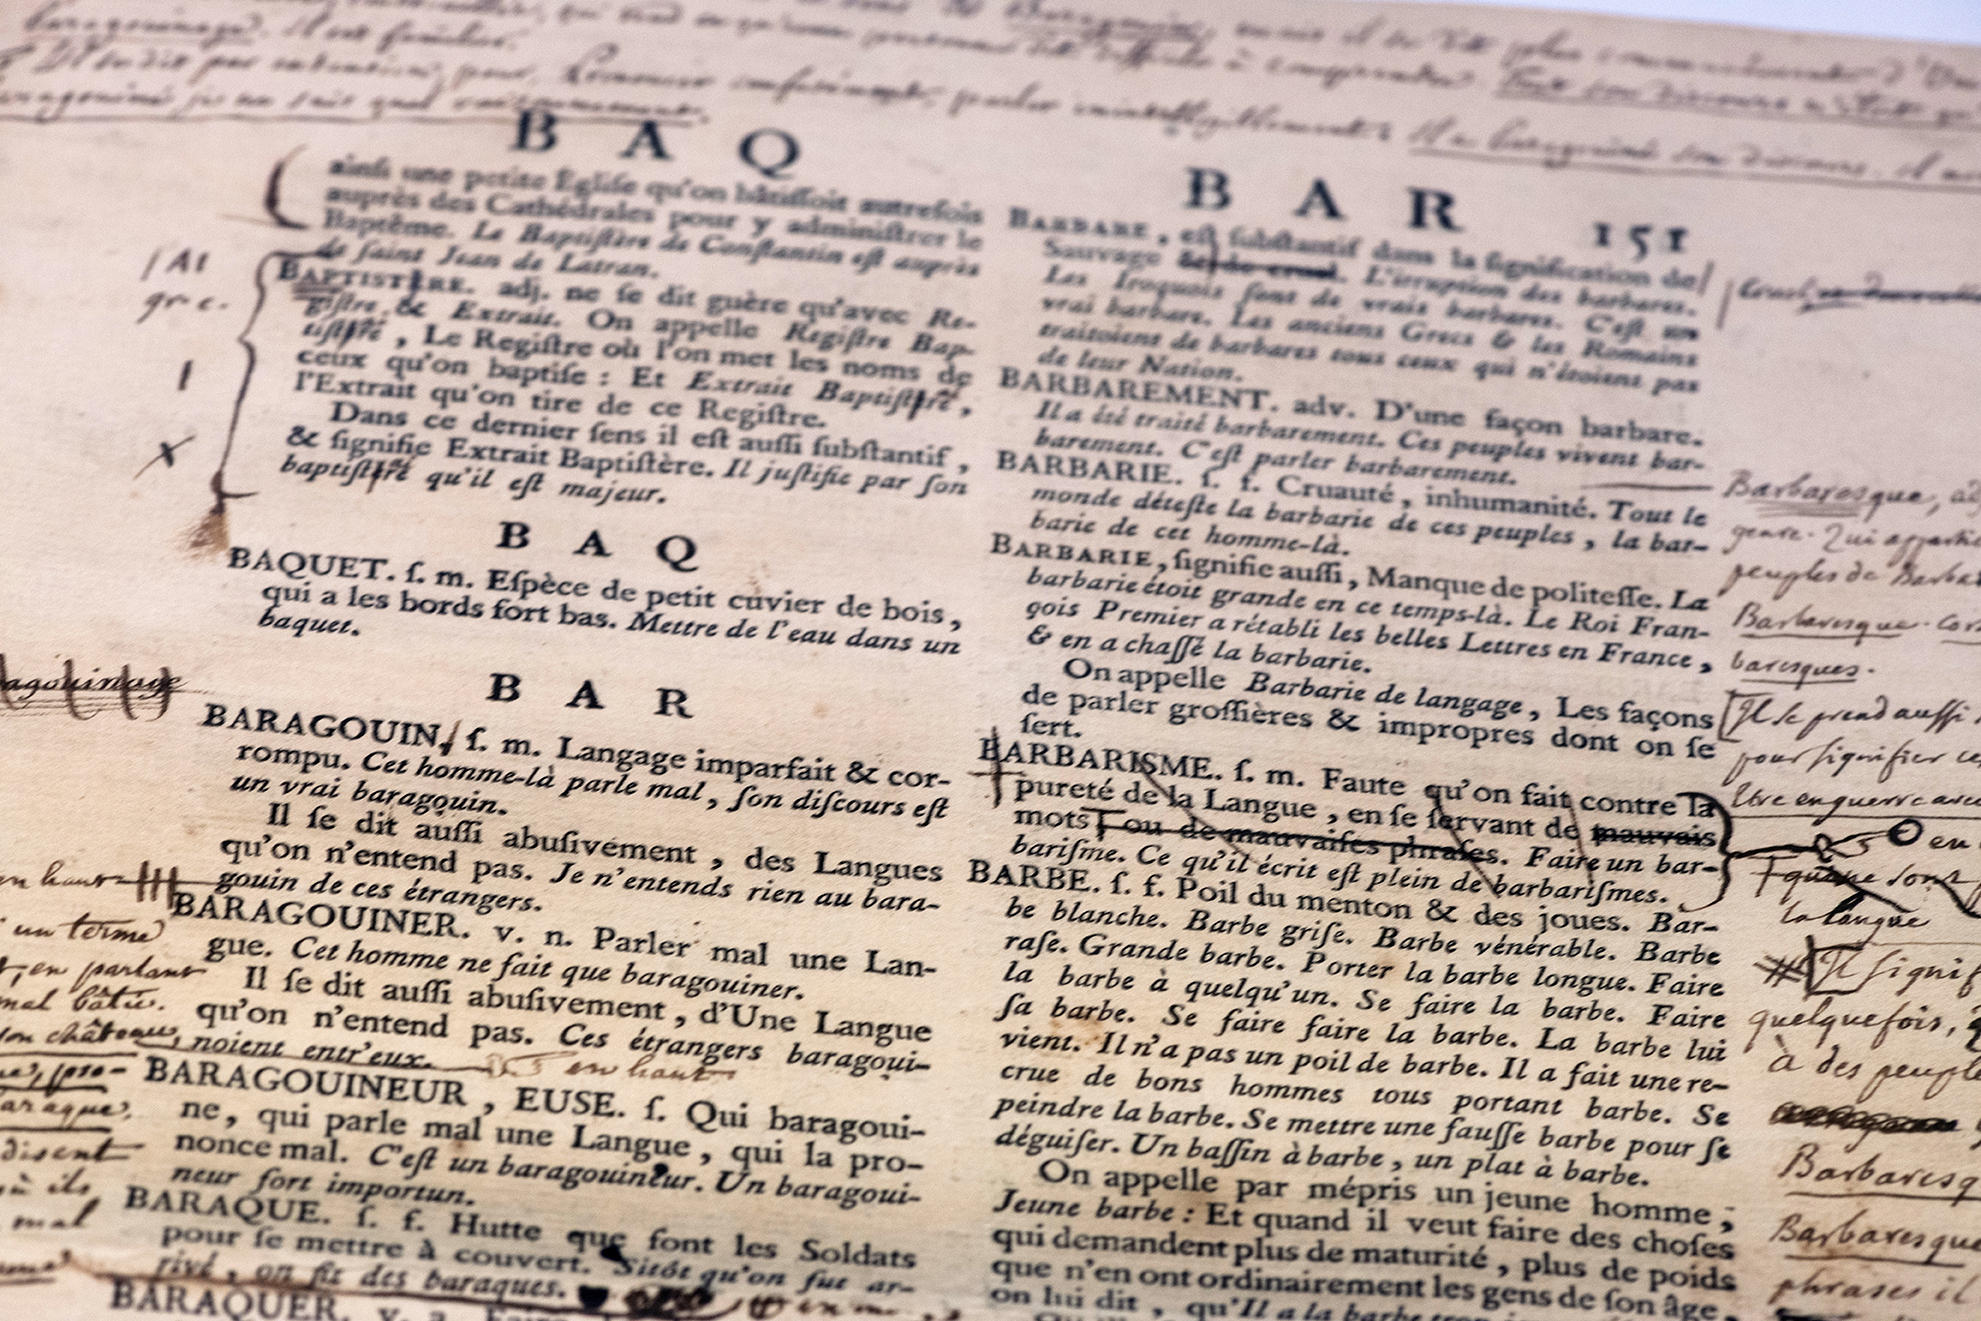 baragouinage. Il est familier.
Il se dit par extension, pour, Prononcer confusément, parler inintelligiblement. Il a baragouiné son discours. Il
baragouiné je ne sais quel
B A Q
ainſi une petite Égliſe qu'on bâtiſſoit autrefois
auprès des Cathédrales pour y adminiſtrer le
Baptême. Le Baptiſtère de Conſtantin eſt auprès
de ſaint Jean de Latran.
BAPTISTÈRE. adj. ne ſe dit guère qu'avec Re-
giſtre & Extrait. On appelle Regiſtre Bap-
tiſtère, Le Regiſtre où l'on met les noms de
ceux qu'on baptiſe : Et Extrait Baptiſtère,
l'Extrait qu'on tire de ce Regiſtre.
Dans ce dernier ſens il eſt auſſi ſubſtantif,
& ſignifie Extrait Baptiſtère. Il juſtifie par ſon
baptiſtère qu'il eſt majeur.
B A Q
BAQUET. ſ. m. Eſpèce de petit cuvier de bois,
qui a les bords fort bas. Mettre de l'eau dans un
baquet.
B A R
agouinage
BARAGOUIN, ſ. m. Langage imparfait & cor-
rompu. Cet homme-là parle mal, ſon diſcours eſt
un vrai baragouin.
Il ſe dit auſſi abuſivement, des Langues
qu'on n'entend pas. Je n'entends rien au bara-
gouin de ces étrangers.
en haut
BARAGOUINER. v. n. Parler mal une Lan-
gue. Cet homme ne fait que baragouiner.
Il ſe dit auſſi abuſivement, d'Une Langue
qu'on n'entend pas. Ces étrangers baragoui-
noient entr'eux.
en haut
un terme
, en parlant
mal bâtie.
son château,
araque.
disent
ils
mal
BARAGOUINEUR, EUSE. ſ. Qui baragoui-
ne, qui parle mal une Langue, qui la pro-
nonce mal. C'eſt un baragouineur. Un baragoui-
neur fort importun.
BARAQUE. ſ. f. Hutte que font les Soldats
pour ſe mettre à couvert. Sitôt qu'on fut ar-
rivé, on fit des baraques.
BARAQUER. v. a. Faire
B A R 151
BARBARE, eſt ſubſtantif dans la ſignification de
Sauvage & de cruel. L'irruption des barbares.
Les Iroquois ſont de vrais barbares. C'eſt un
vrai barbare. Les anciens Grecs & les Romains
traitoient de barbares tous ceux qui n'étoient pas
de leur Nation.
BARBAREMENT. adv. D'une façon barbare.
Il a été traité barbarement. Ces peuples vivent bar-
barement. C'eſt parler barbarement.
BARBARIE. ſ. f. Cruauté, inhumanité. Tout le
monde déteſte la barbarie de ces peuples, la bar-
barie de cet homme-là.
BARBARIE, ſignifie auſſi, Manque de politeſſe. La
barbarie étoit grande en ce temps-là. Le Roi Fran-
çois Premier a rétabli les belles Lettres en France,
& en a chaſſé la barbarie.
On appelle Barbarie de langage, Les façons
de parler groſſières & impropres dont on ſe
ſert.
BARBARISME. ſ. m. Faute qu'on fait contre la
pureté de la Langue, en ſe ſervant de mauvais
mots ou de mauvaiſes phraſes. Faire un bar-
bariſme. Ce qu'il écrit eſt plein de barbariſmes.
BARBE. ſ. f. Poil du menton & des joues. Bar-
be blanche. Barbe griſe. Barbe vénérable. Barbe
raſe. Grande barbe. Porter la barbe longue. Faire
la barbe à quelqu'un. Se faire la barbe. Faire
ſa barbe. Se faire faire la barbe. La barbe lui
vient. Il n'a pas un poil de barbe. Il a fait une re-
crue de bons hommes tous portant barbe. Se
peindre la barbe. Se mettre une fauſſe barbe pour ſe
déguiſer. Un baſſin à barbe, un plat à barbe.
On appelle par mépris un jeune homme,
Jeune barbe : Et quand il veut faire des choſes
qui demandent plus de maturité, plus de poids
que n'en ont ordinairement les gens de ſon âge,
on lui dit, qu'Il a la barbe trop
Barbaresque, adj
genre. Qui appartie
peuples de Barba
Barbaresque. Cor
baresques.
Il se prend aussi
pour signifier ce
être en guerre avec
en
la langue
Il signif
quelquefois,
à des peuple
Barbaresq
Barbaresque
phrases il